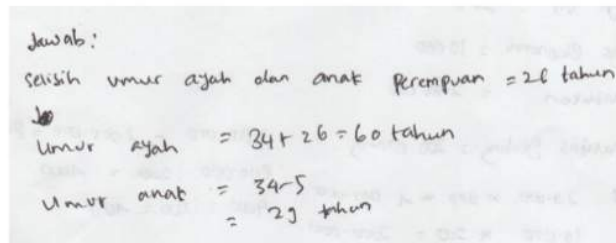 Jawab:
Selisih umur ayah dan anak perempuan = 26 tahun
Umur ayah = 34 + 26 = 60 tahun
Umur anak = 34-5
= 29 tahun